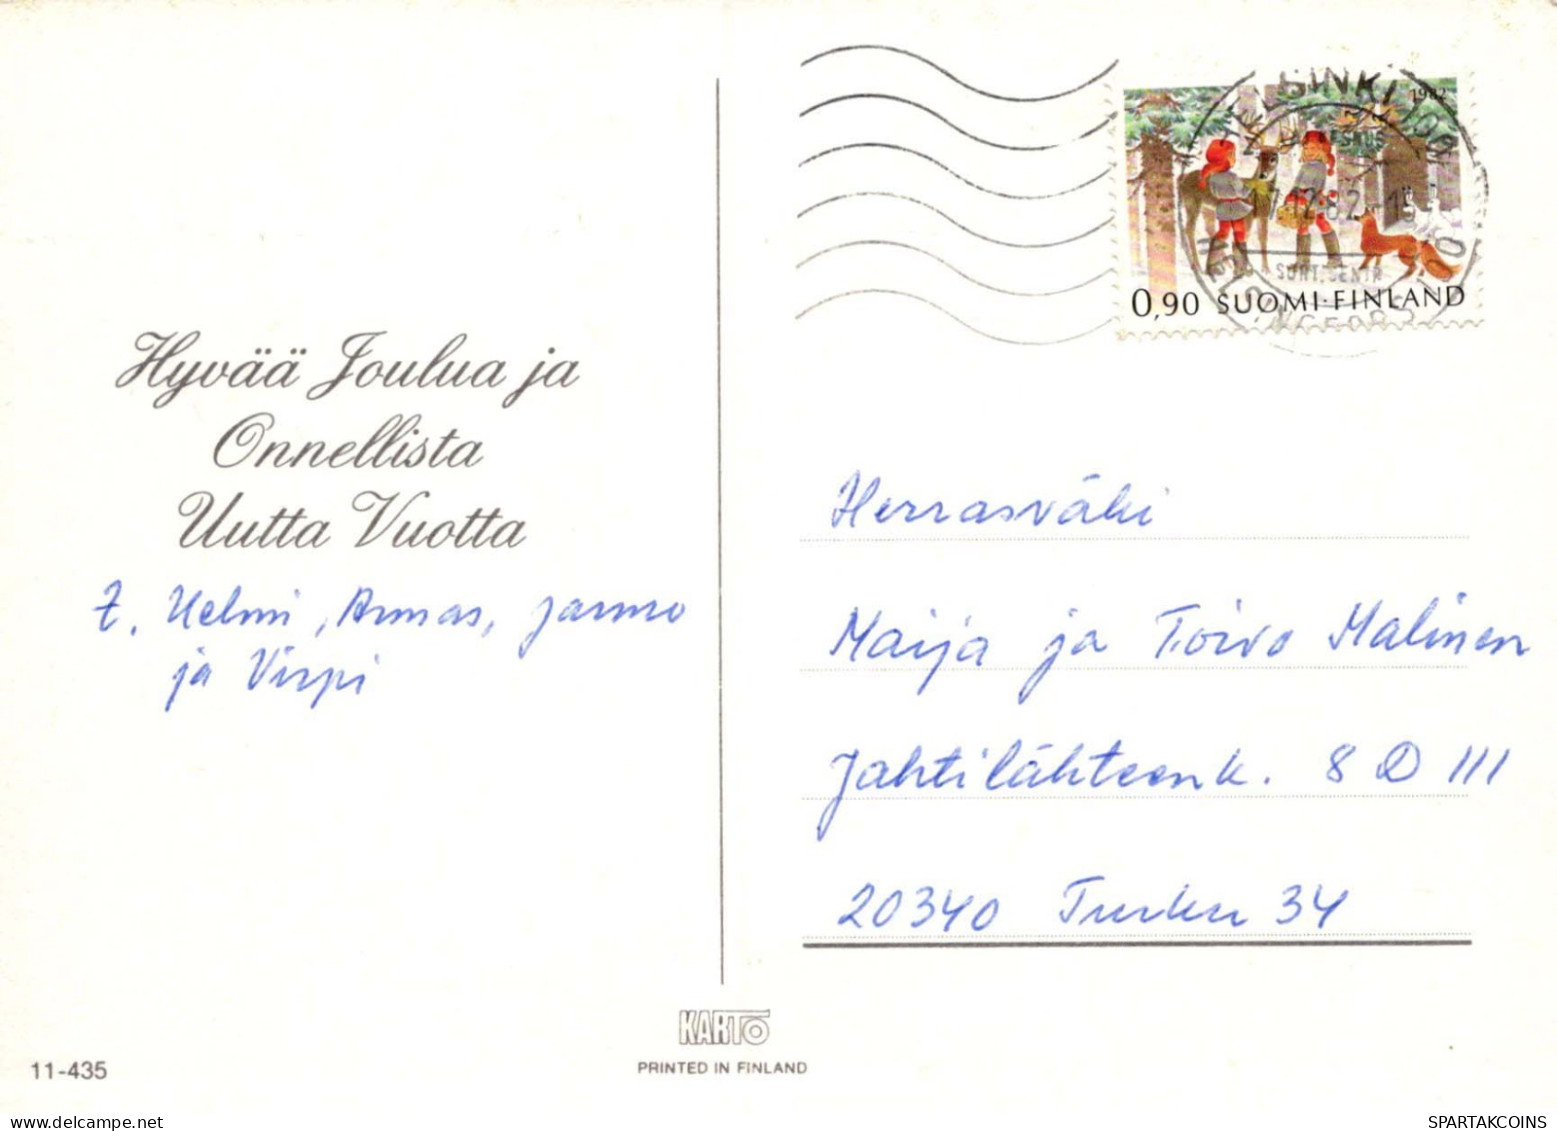 Hyvää Joulua ja
Onnellista
Uutta Vuotta
t. Helmi, Armas, Jarmo
ja Virpi
1982
17.12.82-19
SORT.CENTR
HELSINGFORS
0,90 SUOMI·FINLAND
Herrasväki
Maija ja Toivo Malinen
Jahtilähteenk. 8 D 111
20340 Turku 34
KARTO
PRINTED IN FINLAND
11-435
SPARTAKCOINS